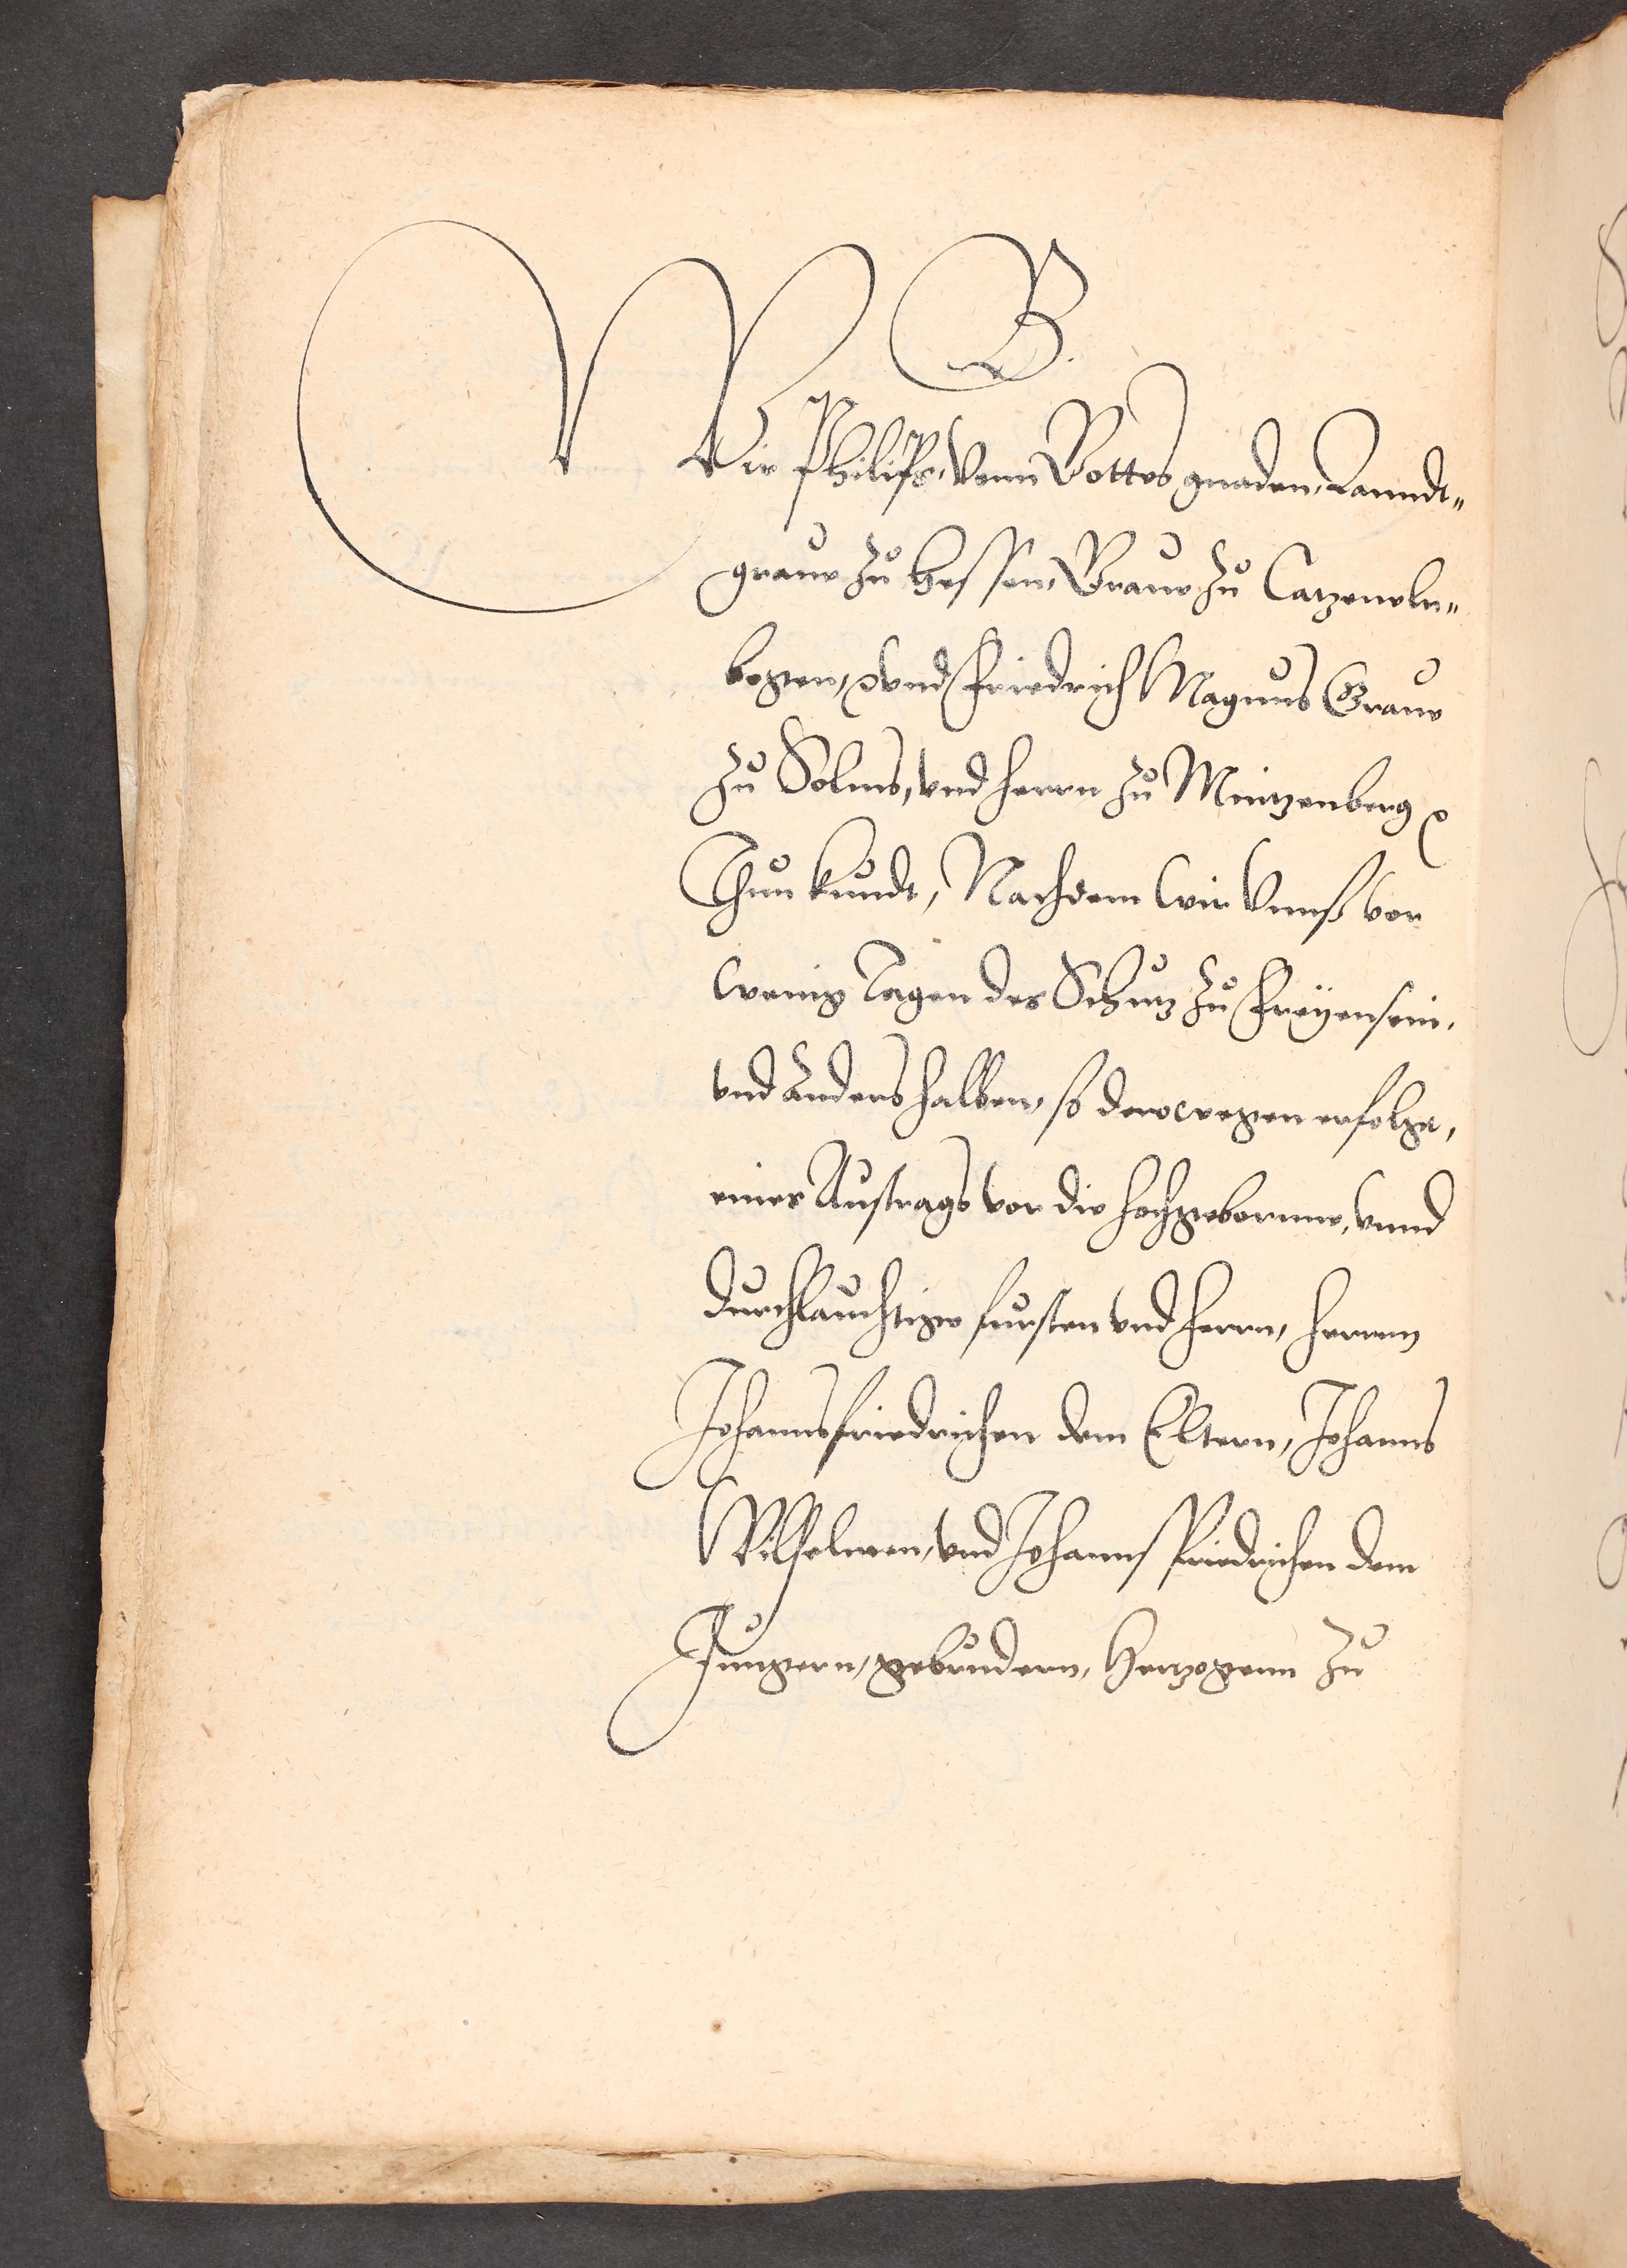 B.
Wir Philips, Vonn Gottes gnaden, Lanndt„
graue zu Hessen, Graue zu Catzeneln„
bogen, vnd Friedrich Magnus Graue
zu Solms, vnd Herrn zu Mintzenberg
Thun kundt, Nachdem Wir Vnnß vor
wenig Tagen des Schutz zu Freyensein,
vnd anders halben, so derowegen erfolgt,
eines Austrags vor die Hochgebornne, vnnd
durchlauchtige fursten vnd Herrn, Herrnn
Johannsfriedrichen dem Eltern, Johanns
Wilhelmen, vnd Johanns Friedrichen dem
Jungern, gebrudern, Hertzogenn zu